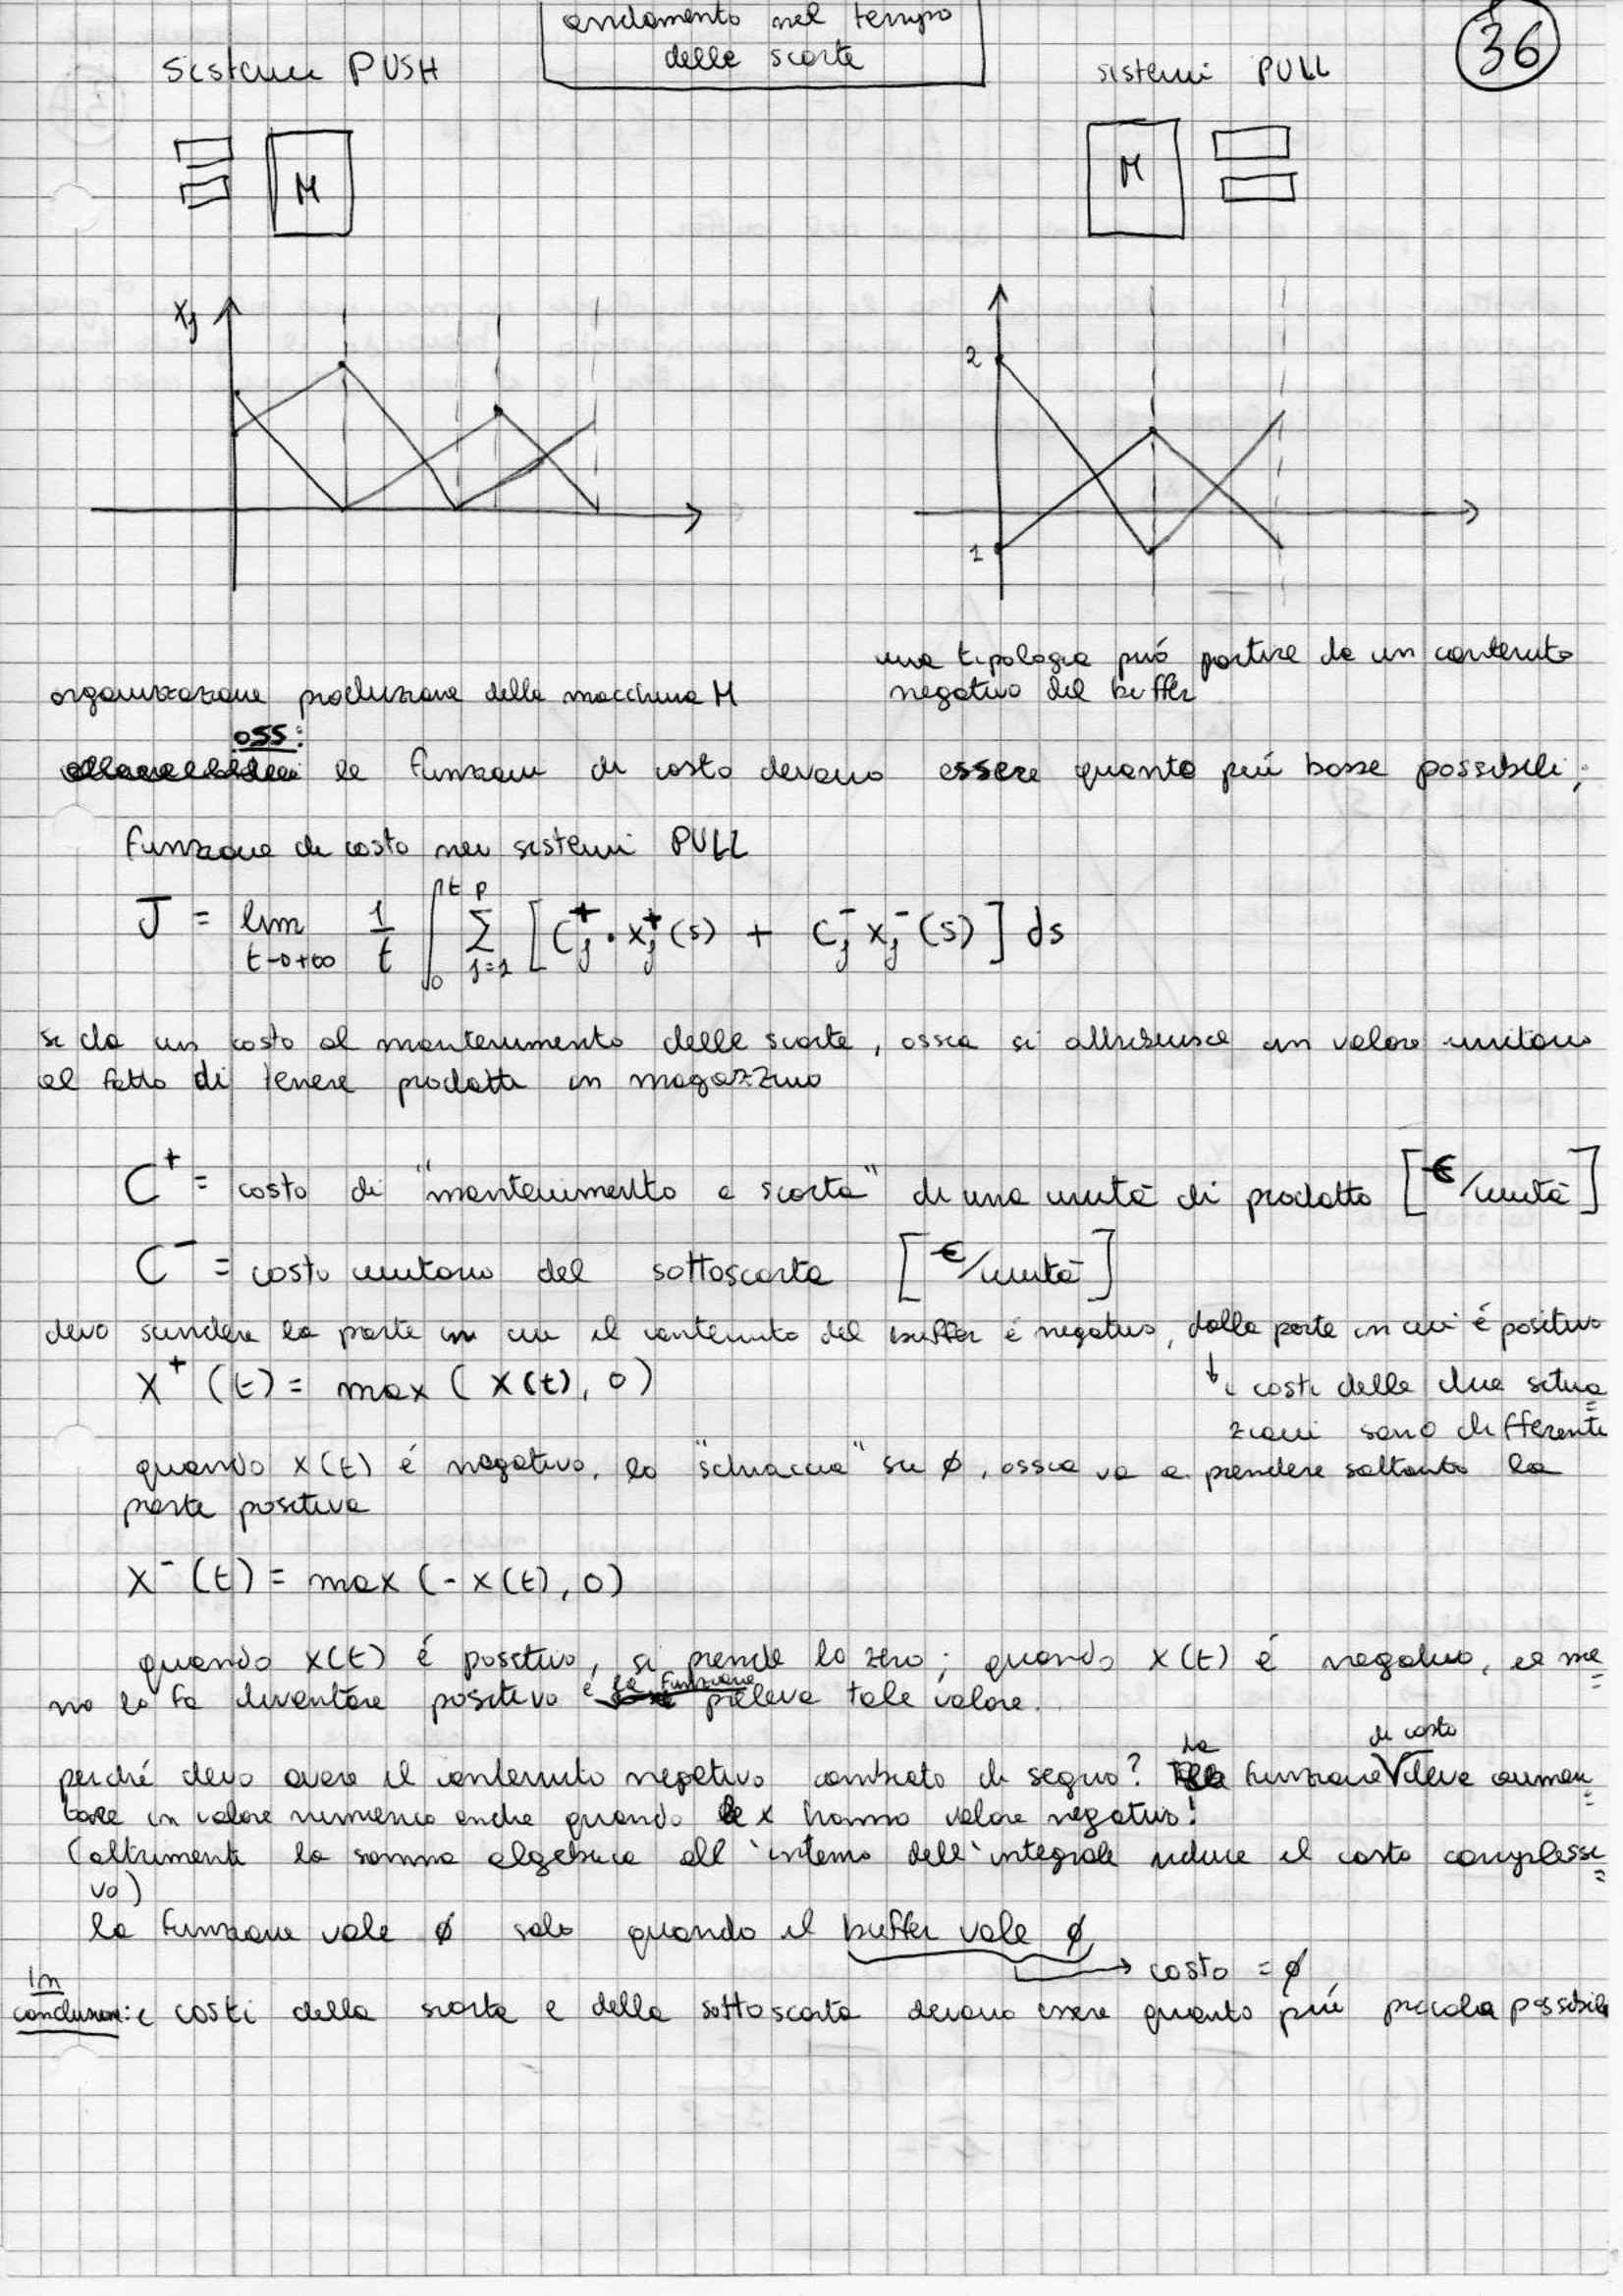 andamento nel tempo
delle scorte
36
Sistemi PUSH
sistemi PULL
M
M
xj
2
1
una tipologia può partire da un contenuto
negativo del buffer
organizzazione produzione della macchina M
oss:
le funzioni di costo devono essere quanto più basse possibili;
funzione di costo nei sistemi PULL
J = lim t→+∞ 1/t ∫₀ᵗ Σ_{j=1}^{P} [Cj⁺ · xj⁺(s) + Cj⁻ xj⁻(s)] ds
si dà un costo al mantenimento delle scorte, ossia si attribuisce un valore unitario
al fatto di tenere prodotti in magazzino
C⁺ = costo di "mantenimento a scorta" di una unità di prodotto [€/unità]
C⁻ = costo unitario del sottoscorta [€/unità]
devo scindere la parte in cui il contenuto del buffer è negativo, dalla parte in cui è positivo
X⁺(t) = max (x(t), 0)
↓ i costi delle due situa=
zioni sono differenti
quando x(t) è negativo, lo "schiaccia" su ϕ, ossia va a prendere soltanto la
parte positiva
X⁻(t) = max (-x(t), 0)
quando x(t) è positivo, si prende lo zero; quando x(t) è negativo, il me=
no lo fa diventare positivo e la funzione preleva tale valore.
perché devo avere il contenuto negativo cambiato di segno? La funzione di costo deve aumen=
tare in valore numerico anche quando le x hanno valore negativo!
(altrimenti la somma algebrica all'interno dell'integrale riduce il costo complessi=
vo)
la funzione vale ϕ solo quando il buffer vale ϕ
→ costo = ϕ
in
conclusione: i costi della scorta e della sottoscorta devono essere quanto più piccola possibile